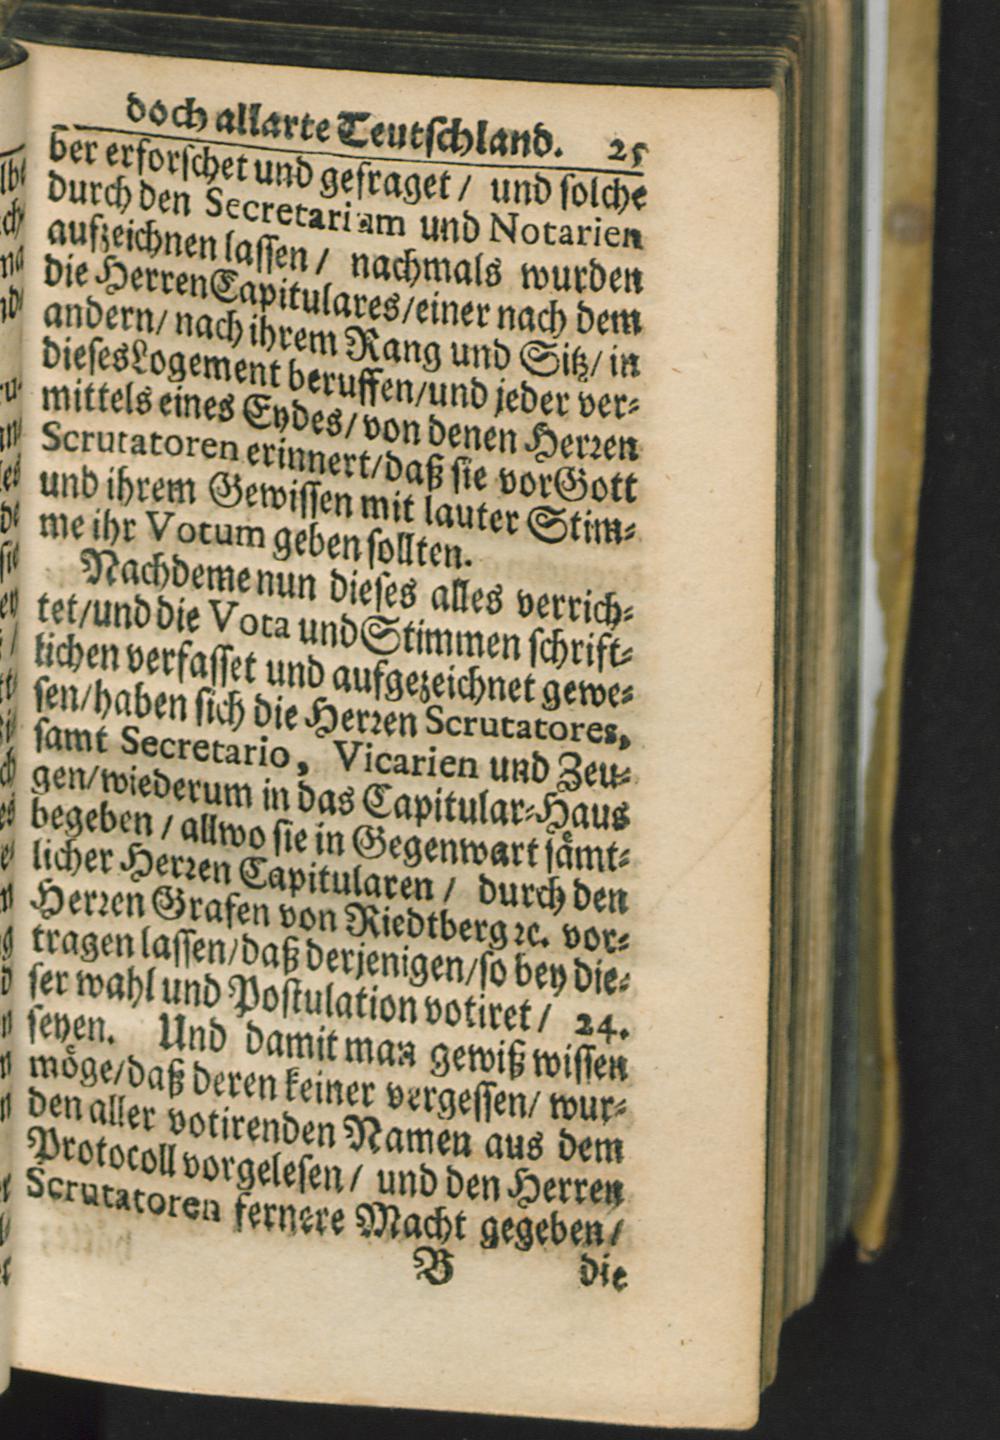 doch allarte Teutschland. 25
ber erforschet und gefraget / und solche
durch den Secretarium und Notarien
aufzeichnen lassen / nachmals wurden
die Herren Capitulares / einer nach dem
andern / nach ihrem Rang und Sitz / in
dieses Logement beruffen / und jeder ver⸗
mittels eines Eydes / von denen Herren
Scrutatoren erinnert / daß sie vor Gott
und ihrem Gewissen mit lauter Stim⸗
me ihr Votum geben sollten.
Nachdeme nun dieses alles verrich⸗
tet / und die Vota und Stimmen schrift⸗
lichen verfasset und aufgezeichnet gewe⸗
sen / haben sich die Herren Scrutatores,
samt Secretario, Vicarien und Zeu⸗
gen / wiederum in das Capitular⸗Haus
begeben / allwo sie in Gegenwart sämt⸗
licher Herren Capitularen / durch den
Herren Grafen von Riedtberg ꝛc. vor⸗
tragen lassen / daß derjenigen / so bey die⸗
ser wahl und Postulation votiret / 24.
seyen. Und damit man gewiß wissen
möge / daß deren keiner vergessen / wur⸗
den aller votirenden Namen aus dem
Protocoll vorgelesen / und den Herren
Scrutatoren fernere Macht gegeben /
B die